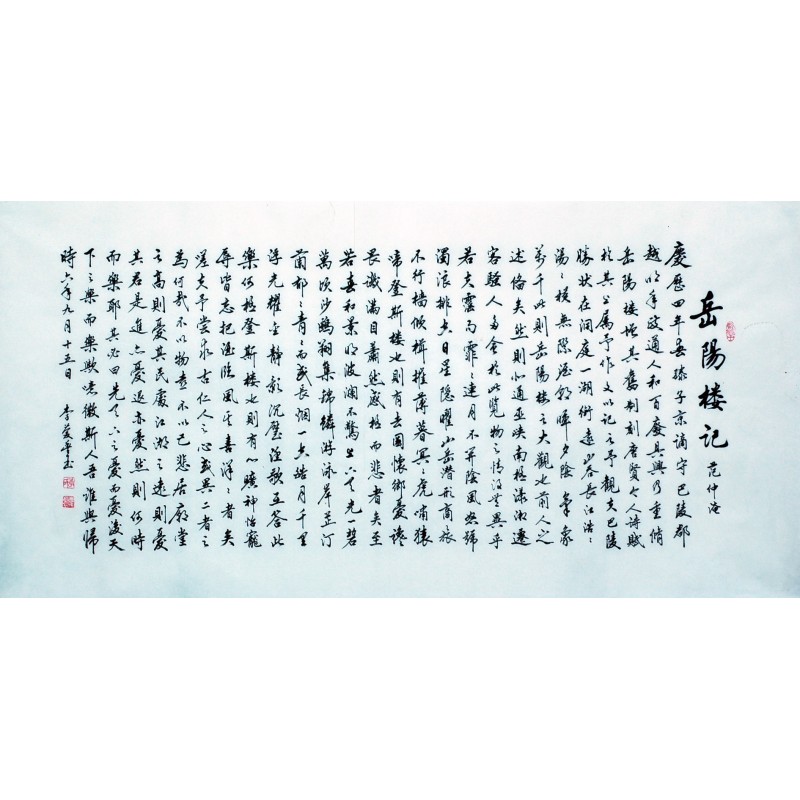 岳陽楼记
范仲淹
慶歷四年春滕子京謫守巴陵郡
越明年政通人和百廢具興乃重脩
岳陽楼增其舊制刻唐賢今人詩賦
於其上属予作文以記之予觀夫巴陵
勝状在洞庭一湖銜遠山吞長江浩〻
湯〻横無際涯朝暉夕陰氣象
万千此則岳陽楼之大觀也前人之
述備矣然則北通巫峡南極瀟湘遷
客騷人多會於此覧物之情得無異乎
若夫霪雨霏〻連月不開陰風怒號
濁浪排空日星隐曜山岳潛形商旅
不行檣傾楫摧薄暮冥〻虎嘯猿
啼登斯楼也則有去國懷鄉憂讒
畏譏滿目蕭然感極而悲者矣至
若春和景明波澜不驚上下天光一碧
萬顷沙鷗翔集錦鳞游泳岸芷汀
蘭郁〻青〻而或長烟一空皓月千里
浮光耀金静影沉璧漁歌互答此
樂何極登斯楼也則有心曠神怡寵
辱皆忘把酒临風其喜洋〻者矣
嗟夫予嘗求古仁人之心或異二者之
為何哉不以物喜不以己悲居廟堂
之高則憂其民處江湖之遠則憂
其君是進亦憂退亦憂然則何時
而樂耶其必曰先天下之憂而憂後天
下之樂而樂歟噫微斯人吾誰與歸
時六年九月十五日